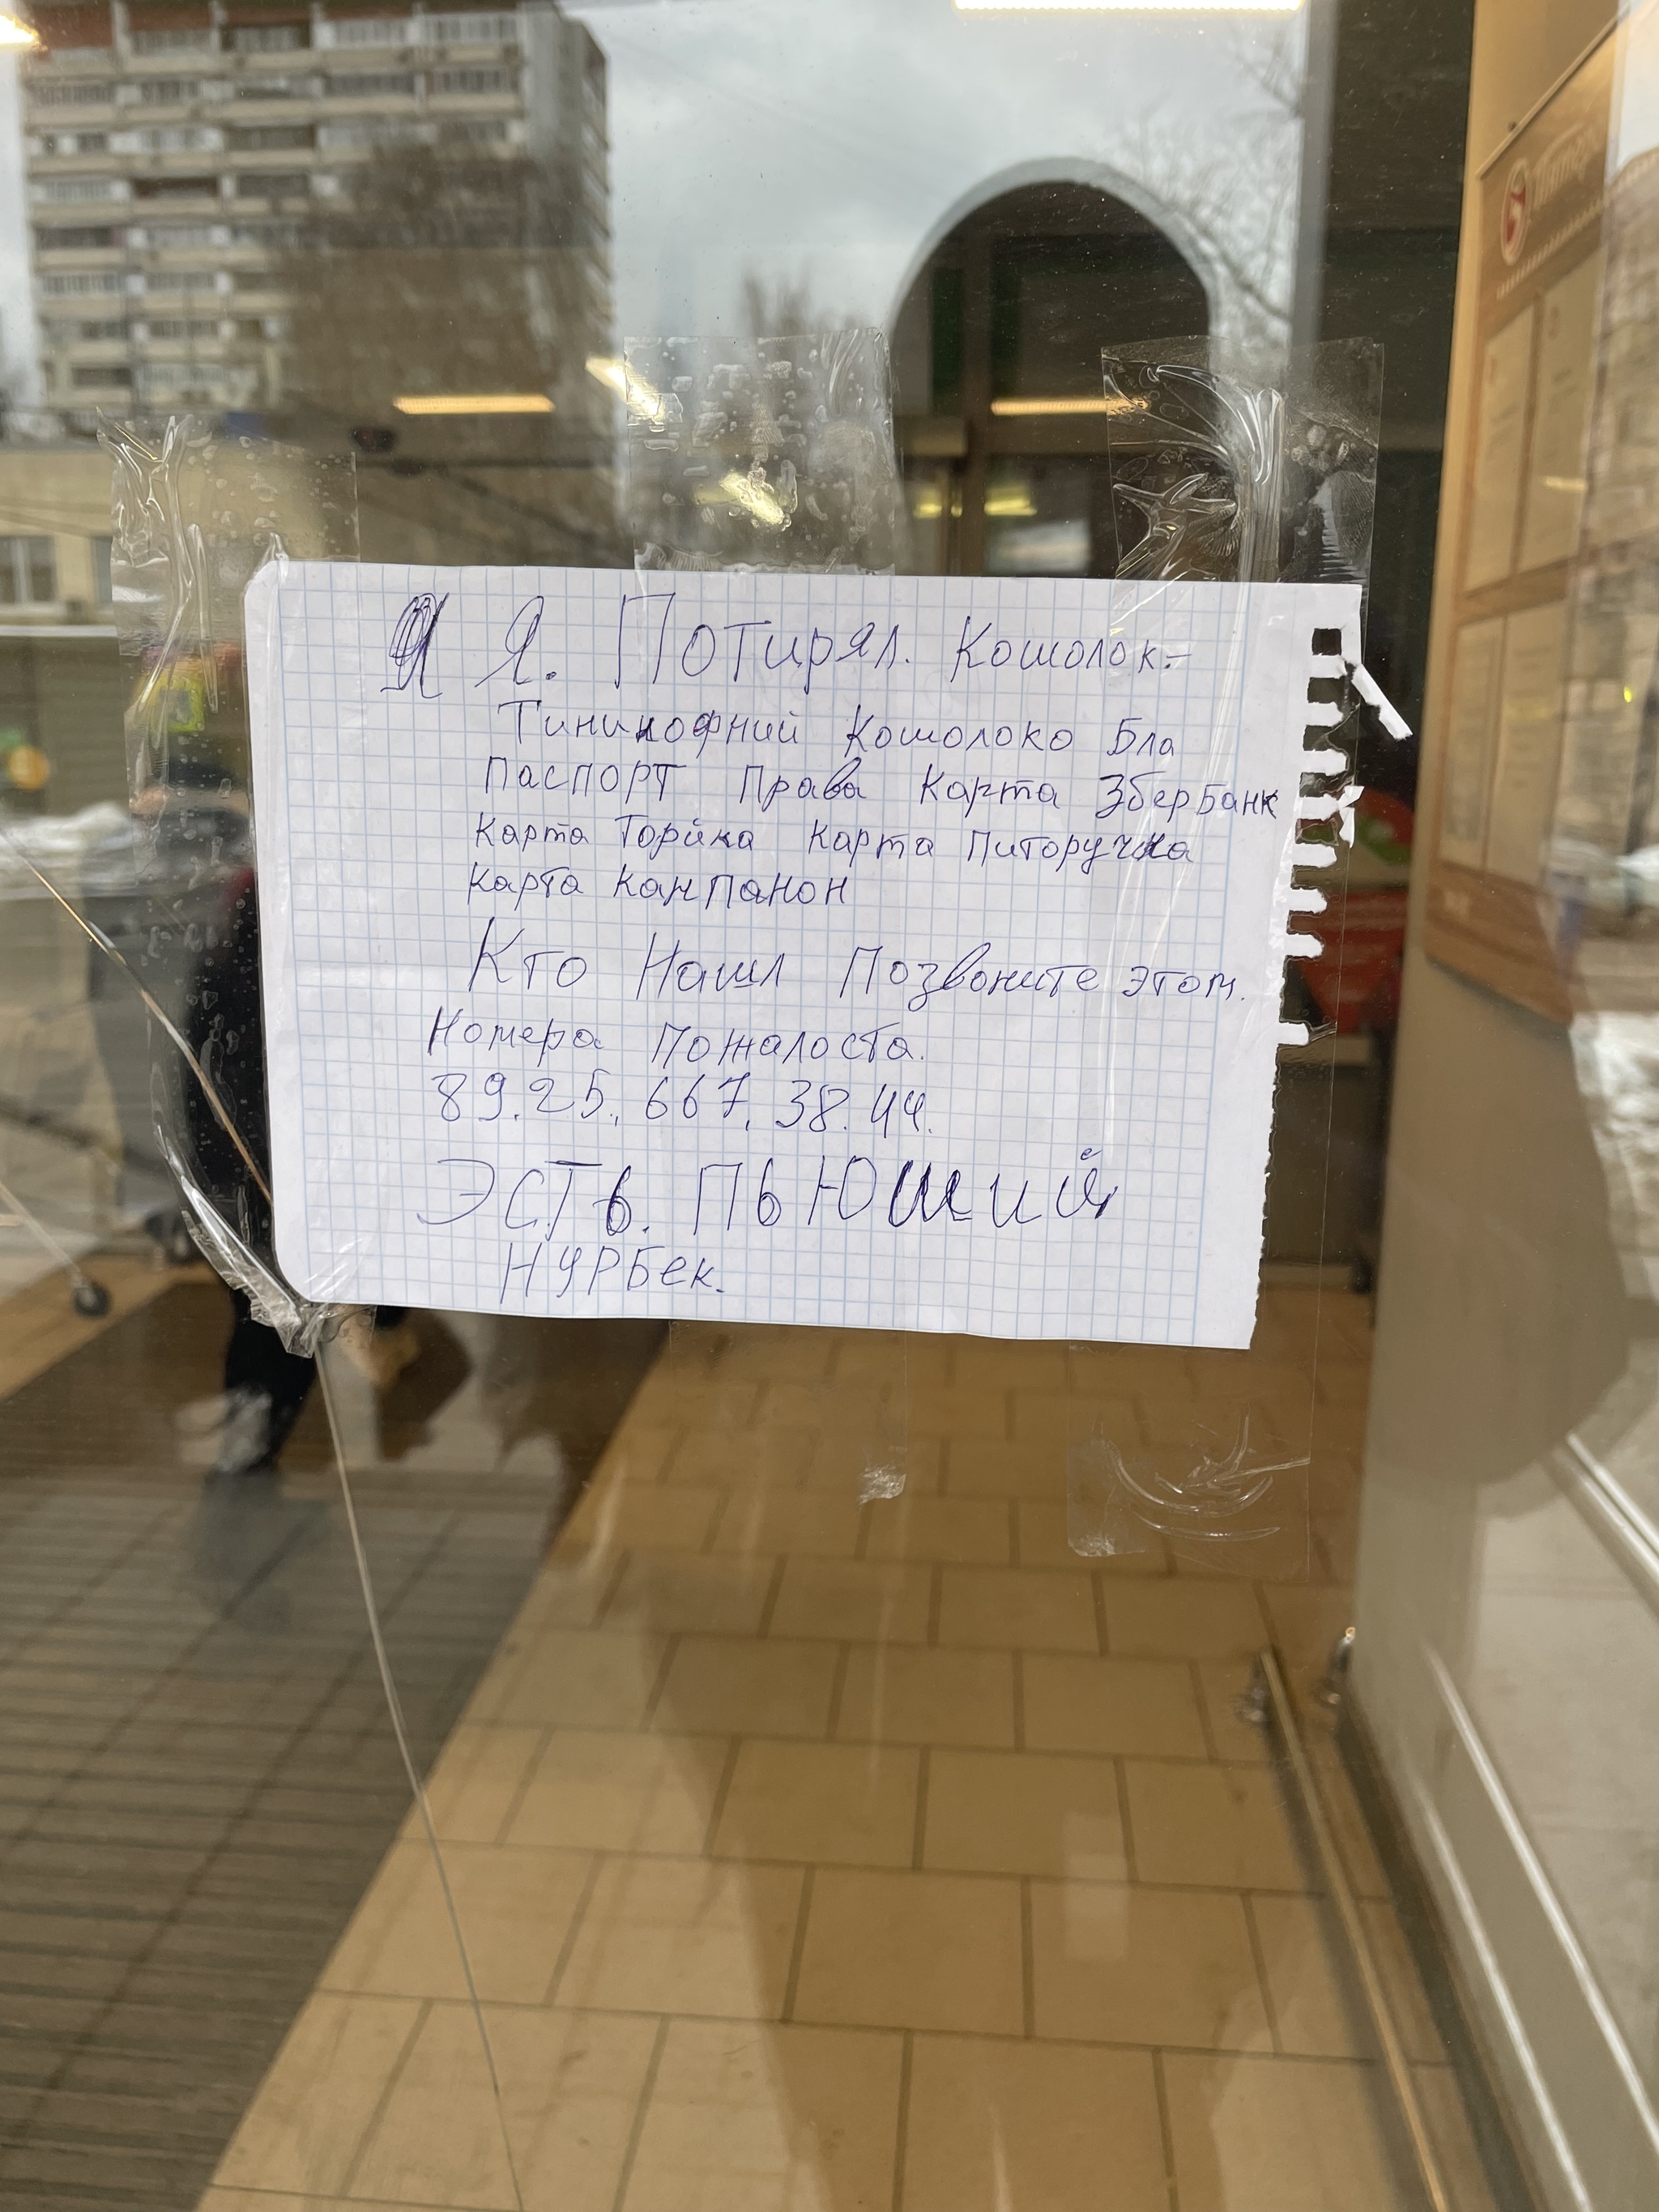 Я Я. Потирял. Кошолок.-
Тиникофний Кошолоко Бла
Паспорт Права Карта Збербанк
Карта Торйка Карта Питоручка
Карта Канпанон
Кто Нашл Позвоните этом.
Номера Пожалоста.
89.25.667.38.44.
ЭСТЬ. ПЬЮШИЙ
НУРБек.